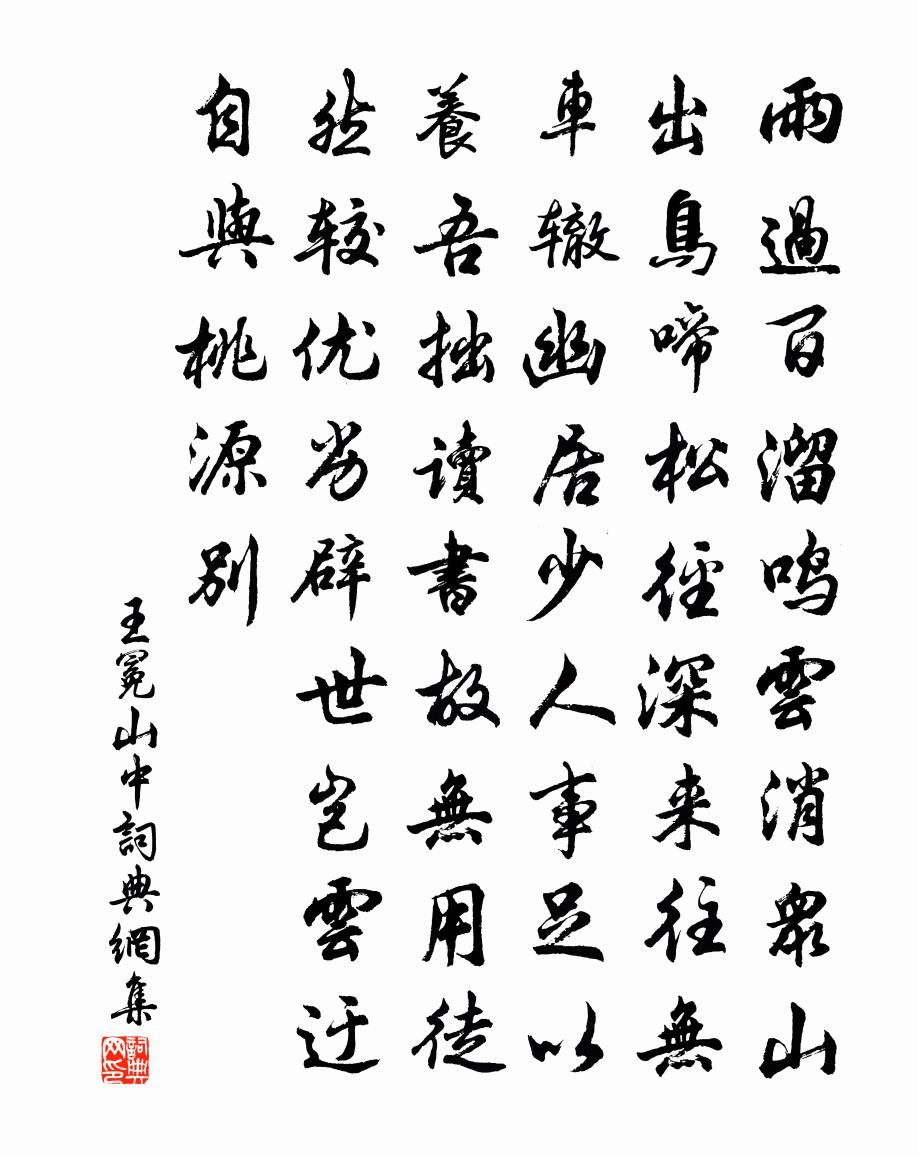 雨過百溜鸣雲消眾山
出鳥啼松徑深来往無
車辙幽居少人事足以
養吾拙讀書故無用徒
然较优劣辟世岂雲迂
自與桃源别
王冕山中詞典網集
詞典网印